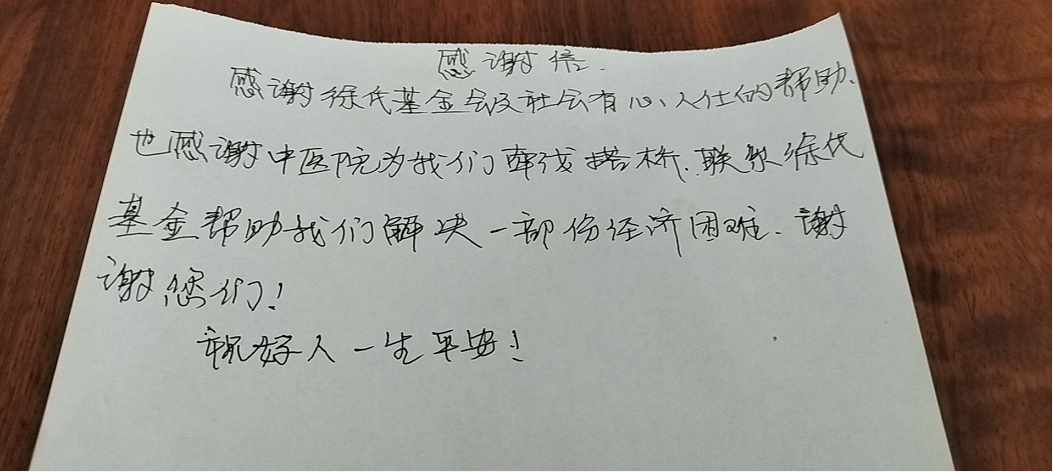 感谢信.
感谢徐氏基金会及社会有心人仕的帮助.
也感谢中医院为我们牵线搭桥.联系徐氏
基金帮助我们解决一部份经济困难.谢
谢您们!
祝好人一生平安!